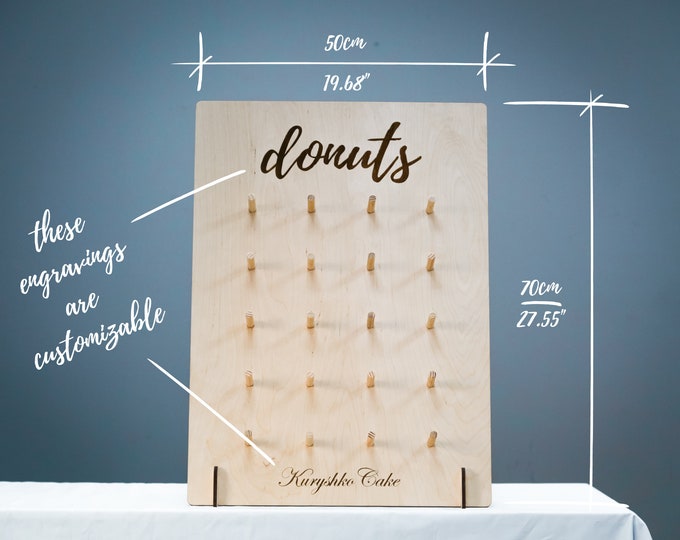 50cm
19.68"
donuts
these
engravings
are
customizable
70cm
27.55"
Kuryshko Cake